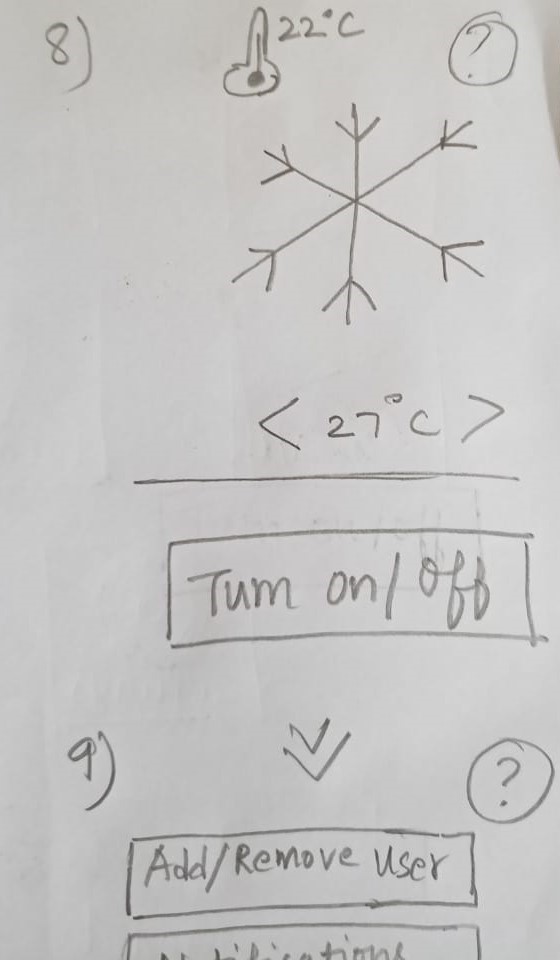 8) 22°C ?
< 27°C >
Turn on/off
9) ?
Add/Remove User
Notifications